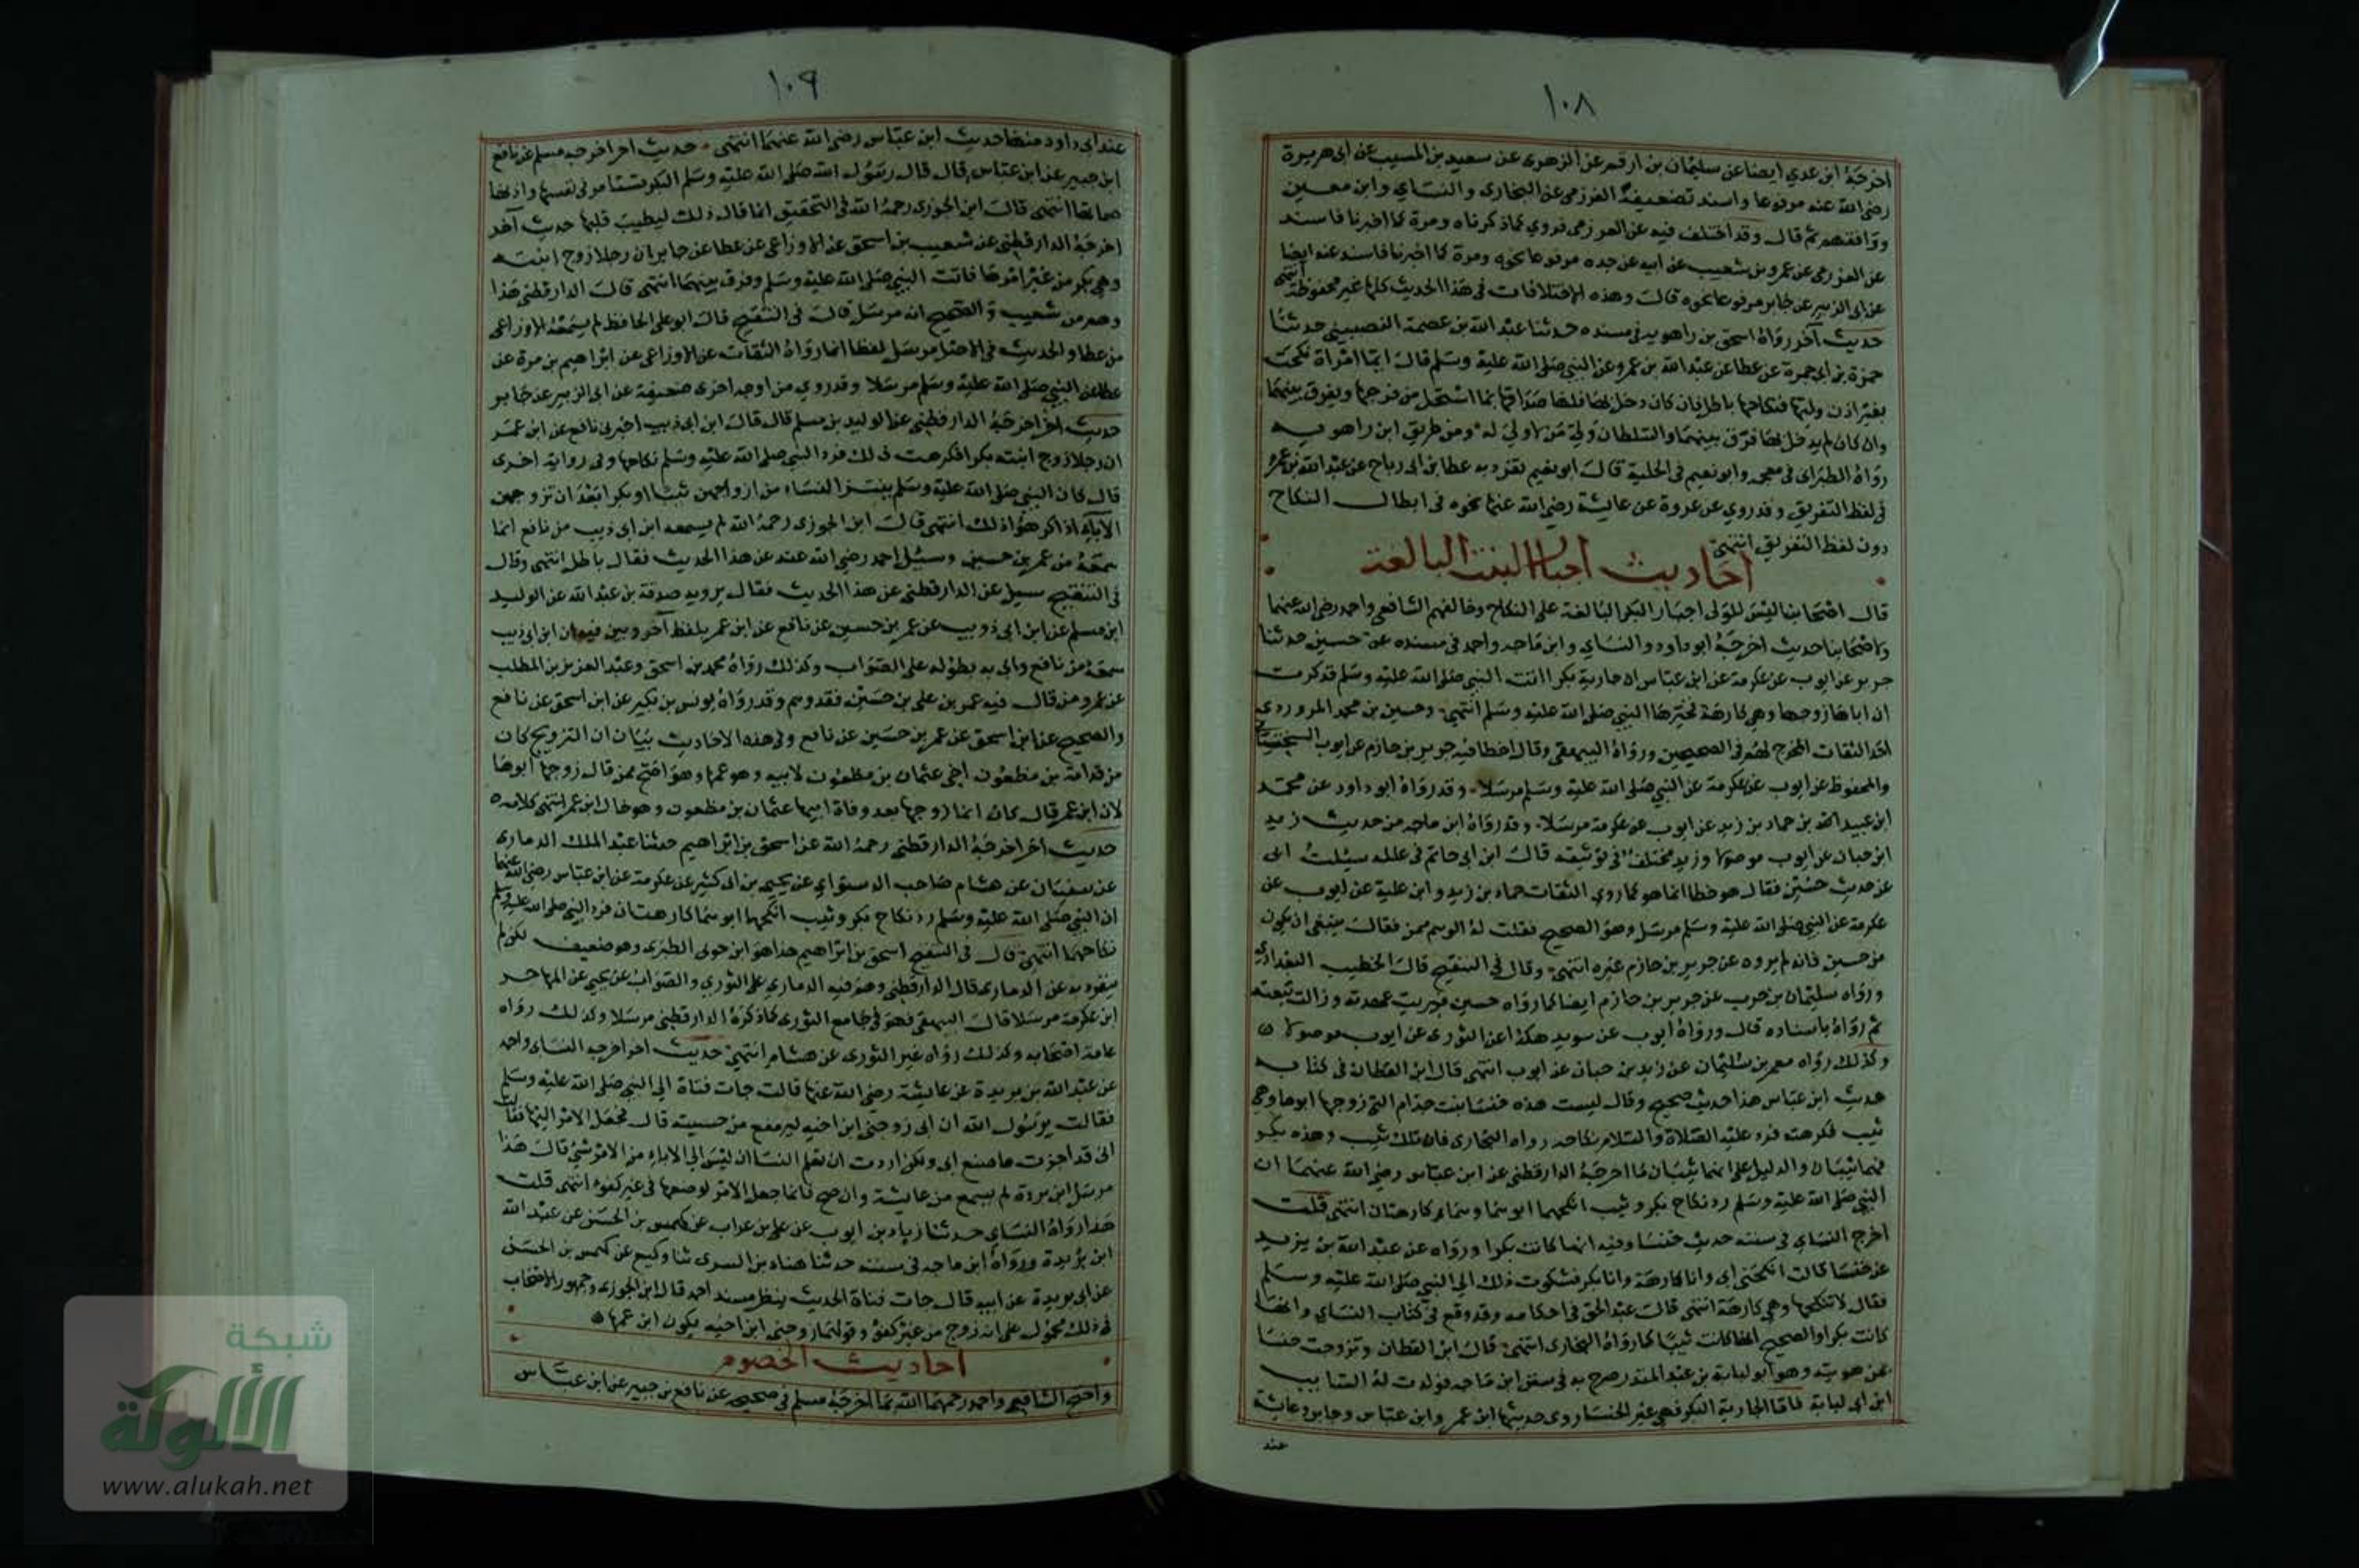 ١٠٨
اخرجه ابن عدي ايضا عن سليمان بن ارقم عن الزهرى عن سعيد بن المسيب عن ابى هريرة
رضى الله عنه مرفوعا واسند تضعيفه العرزمى عن البخارى والنساي وابن معين
ووافقهم ثم قال وقد اختلف فيه عن العرزمى فروي كما ذكرناه ومرة كما اخبرنا فاسند
عن العزرمى عن عمرو بن شعيب عن ابيه عن جده مرفوعا نحوه ومرة كما اخبرنا فاسند عنه ايضا
عن ابى الزبير عن جابر مرفوعا نحوه قال وهذه الاختلافات فى هذا الحديث كلها غير محفوظة انتهى
حديث آخر رواه اسحق بن راهويه فى مسنده حدثنا عبد الله بن عصمة النصيبينى حدثنا
حمزة بن ابى حمزة عن عطا عن عبد الله بن عمرو عن النبى صلى الله عليه وسلم قال ايما امراة نكحت
بغير اذن وليها فنكاحها باطل فان كان دخل بها فلها صداقها بما استحل من فرجها ويفرق بينهما
وان كان لم يدخل بها فرق بينهما والسلطان ولى من لا ولى له ومن طريق ابن راهويه
رواه الطبرانى فى معجمه وابو نعيم فى الحلية قال ابو نعيم تفرد به عطا بن ابى رباح عن عبد الله بن عمرو
فى لفظ التفريق وقد روي عن عروة عن عايشة رضى الله عنها نحوه فى ابطال النكاح
دون لفظ التفريق انتهى
احاديث اجبار البنت البالغة
قال اصحابنا ليس للولى اجبار البكر البالغة على النكاح وخالفهم الشافعى واحمد رضى الله عنهما
ولاصحابنا حديث اخرجه ابو داود والنساي وابن ماجه واحمد فى مسنده عن حسين حدثنا
جرير عن ايوب عن عكرمة عن ابن عباس ان جارية بكرا اتت النبى صلى الله عليه وسلم فذكرت
ان اباها زوجها وهى كارهة فخيرها النبى صلى الله عليه وسلم انتهى وحسين بن محمد المروروذي
احد الثقات المخرج لهم فى الصحيحين ورواه البيهقى وقال اخطا فيه جرير بن حازم عن ايوب السختيانى
والمحفوظ عن ايوب عن عكرمة عن النبى صلى الله عليه وسلم مرسلا وقد رواه ابو داود عن محمد
ابن عبيد الله بن حماد بن زيد عن ايوب عن عكرمة مرسلا وقد رواه ابن ماجه من حديث زيد
ابن حبان عن ايوب موصولا وزيد مختلف فى توثيقه قال ابن ابى حاتم فى علله سيلت ابى
عن حديث حسين فقال هو خطا انما هو كما روى الثقات حماد بن زيد وابن علية عن ايوب عن
عكرمة عن النبى صلى الله عليه وسلم مرسل وهو الصحيح فقلت له الوهم ممن فقال ينبغى ان يكون
من حسين فانه لم يروه عن جرير بن حازم غيره انتهى وقال فى التنقيح قال الخطيب البغدادي
ورواه سليمان بن حرب عن جرير بن حازم ايضا كما رواه حسين فبريت عهدته وزالت تبعته
ثم رواه باسناده قال ورواه ايوب عن سويد هكذا عن الثورى عن ايوب موصولا
وكذلك رواه معمر بن سليمان عن زيد بن حبان عن ايوب انتهى قال ابن القطان فى كتابه
حديث ابن عباس هذا حديث صحيح وقال ليست هذه خنسا بنت خذام التى زوجها ابوها وهى
ثيب فكرهته فرد عليه الصلاة والسلام نكاحه رواه البخارى فان تلك ثيب وهذه بكر
فهما ثيبان والدليل على انهما ثيبان ما اخرجه الدارقطنى عن ابن عباس رضى الله عنهما ان
النبى صلى الله عليه وسلم رد نكاح بكر وثيب انكحهما ابوهما وهما كارهتان انتهى قلت
اخرج النساي فى سننه حديث خنسا وفيه انها كانت بكرا ورواه عن عبد الله بن يزيد
عن خنسا قالت انكحنى ابى وانا كارهة وانا بكر فشكوت ذلك الى النبى صلى الله عليه وسلم
فقال لا تنكحها وهى كارهة انتهى قال عبد الحق فى احكامه وقد وقع فى كتاب النساي وانها
كانت بكرا والصحيح انها كانت ثيبا كما رواه البخارى انتهى قال ابن القطان وتزوجت خنسا
بمن هويته وهو ابو لبابة بن عبد المنذر صرح به فى سنن ابن ماجه فولدت له السايب
ابن ابى لبابة فاما الجارية البكر فهى غير الخنسا روى حديثها ابن عمر وابن عباس وجابر وعايشة
عند
١٠٩
عند ابى داود منها حديث ابن عباس رضى الله عنهما انتهى حديث اخر اخرجه مسلم عن نافع
ابن جبير عن ابن عباس قال قال رسول الله صلى الله عليه وسلم البكر تستامر فى نفسها واذنها
صماتها انتهى قال ابن الجوزى رحمه الله فى التحقيق انما قال ذلك ليطيب قلبها حديث آخر
اخرجه الدارقطنى عن شعيب بن اسحق عن الاوزاعى عن عطا عن جابر ان رجلا زوج ابنته
وهى بكر من غير امرها فاتت النبى صلى الله عليه وسلم وفرق بينهما انتهى قال الدارقطنى هذا
وهم من شعيب والصحيح انه مرسل قال فى التنقيح قال ابو على الحافظ لم يسمعه الاوزاعى
من عطا والحديث فى الاصل مرسل لفظا انما رواه الثقات عن الاوزاعى عن ابراهيم بن مرة عن
عطا عن النبى صلى الله عليه وسلم مرسلا وقد روي من اوجه اخرى ضعيفة عن ابى الزبير عن جابر
حديث اخر اخرجه الدارقطنى عن الوليد بن مسلم قال قال ابن ابى ذيب اخبرنى نافع عن ابن عمر
ان رجلا زوج ابنته بكرا فكرهت ذلك فرد النبى صلى الله عليه وسلم نكاحها وفى رواية اخرى
قال كان النبى صلى الله عليه وسلم ينتزع النساء من ازواجهن ثيبا او بكرا بعد ان تزوجهن
الآباء اذا كرهوا ذلك انتهى قال ابن الجوزى رحمه الله لم يسمعه ابن ابى ذيب من نافع انما
سمعه من عمر بن حسين وسيل احمد رضى الله عنه عن هذا الحديث فقال باطل انتهى وقال
فى التنقيح سيل عن الدارقطنى عن هذا الحديث فقال يرويه صدقة بن عبد الله عن الوليد
ابن مسلم عن ابن ابى ذويب عن عمر بن حسين عن نافع عن ابن عمر بلفظ آخر وبين فيه ان ابن ابى ذيب
سمعه من نافع واتى به بطوله على الصواب وكذلك رواه محمد بن اسحق وعبد العزيز بن المطلب
عن عمر ومن قال فيه عمر بن على بن حسين فقد وهم وقد رواه يونس بن بكير عن ابن اسحق عن نافع
والصحيح عن ابن اسحق عن عمر بن حسين عن نافع وفى هذه الاحاديث بيان ان التزويج كان
من قدامة بن مظعون اخى عثمان بن مظعون لابيه وهو عمها وهو اصح ممن قال زوجها ابوها
لان ابن عمر قال كان انما زوجها بعد وفاة ابيها عثمان بن مظعون وهو خال ابن عمر انتهى كلامه
حديث اخر اخرجه الدارقطنى رحمه الله عن اسحق بن ابراهيم حدثنا عبد الملك الدمارى
عن سفيان عن هشام صاحب الدستواي عن يحيى بن ابى كثير عن عكرمة عن ابن عباس رضى الله عنهما
ان النبى صلى الله عليه وسلم رد نكاح بكر وثيب انكحهما ابوهما كارهتان فرد النبى صلى الله عليه وسلم
نكاحهما انتهى قال فى التنقيح اسحق بن ابراهيم هذا هو ابن جوتى الطبرى وهو ضعيف لكن لم
ينفرد به عن الدمارى قال الدارقطنى وهم فيه الدمارى على الثوري والصواب عن يحيى عن المهاجر
ابن عكرمة مرسلا قال البيهقى فهو فى جامع الثورى كما ذكره الدارقطنى مرسلا وكذلك رواه
عامة اصحابه وكذلك رواه غير الثورى عن هشام انتهى حديث اخر اخرجه النساي واحمد
عن عبد الله بن بريدة عن عايشة رضى الله عنها قالت جات فتاة الى النبى صلى الله عليه وسلم
فقالت يرسول الله ان ابى زوجنى ابن اخيه ليرفع من خسيسته قال فجعل الامر اليها فقالت
انى قد اجزت ما صنع ابى ولكن اردت ان تعلم النسا ان ليس الى الاباء من الامر شئ قال هذا
مرسل ابن بردة لم يسمع من عايشة وان صح فانما جعل الامر لوضعها فى غير كفوه انتهى قلت
هذا رواه النساي حدثنا زياد بن ايوب عن على بن عراب عن كهمس بن الحسن عن عبد الله
ابن بريدة ورواه ابن ماجه فى سننه حدثنا هناد بن السرى ثنا وكيع عن كهمس بن الحسن
عن ابى بريدة عن ابيه قال جات فتاة الحديث ينظر مسند احمد قال ابن الجوزى وجمهور الاصحاب
فى ذلك محمول على انه زوج من غير كفؤ وقولها زوجنى ابن اخيه يكون ابن عمها
احاديث الخصوم
واحتج الشافعى واحمد رحمهما الله بما اخرجه مسلم فى صحيحه عن نافع بن جبير عن ابن عباس
شبكة
الألوكة
www.alukah.net